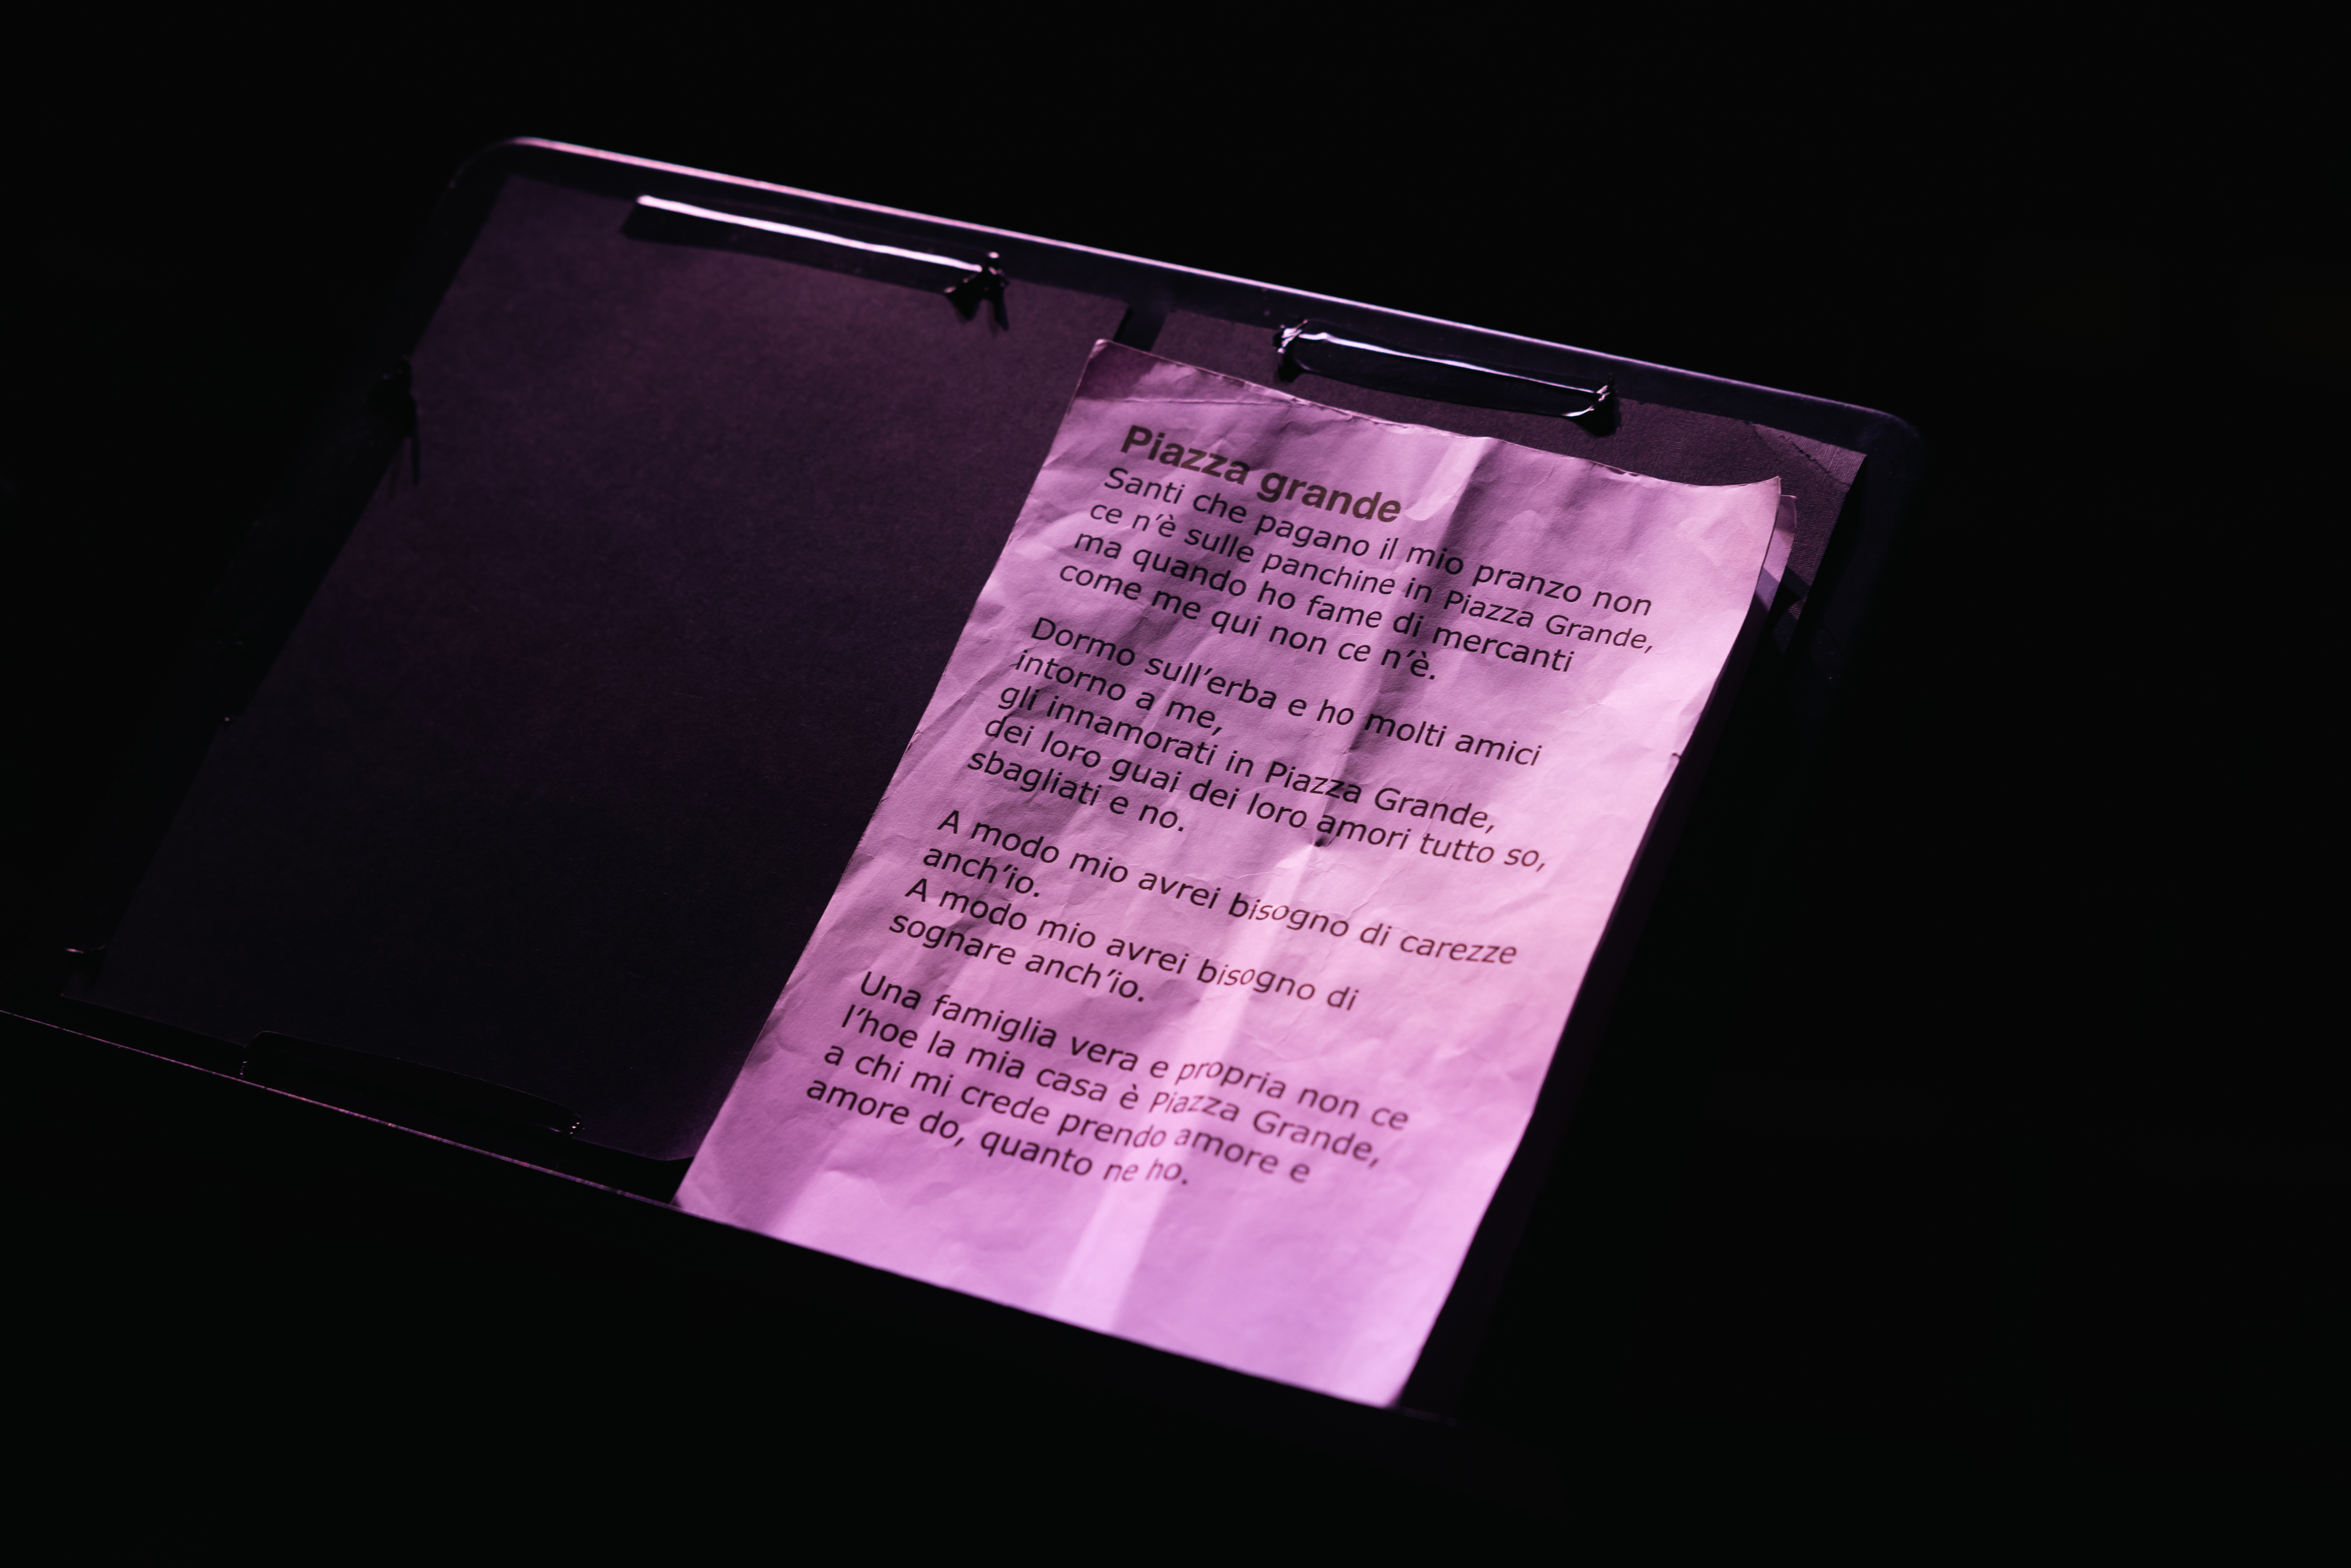 Piazza grande
Santi che pagano il mio pranzo non
ce n'è sulle panchine in Piazza Grande,
ma quando ho fame di mercanti
come me qui non ce n'è.
Dormo sull'erba e ho molti amici
intorno a me,
gli innamorati in Piazza Grande,
dei loro guai dei loro amori tutto so,
sbagliati e no.
A modo mio avrei bisogno di carezze
anch'io.
A modo mio avrei bisogno di
sognare anch'io.
Una famiglia vera e propria non ce
l'hoe la mia casa è Piazza Grande,
a chi mi crede prendo amore e
amore do, quanto ne ho.